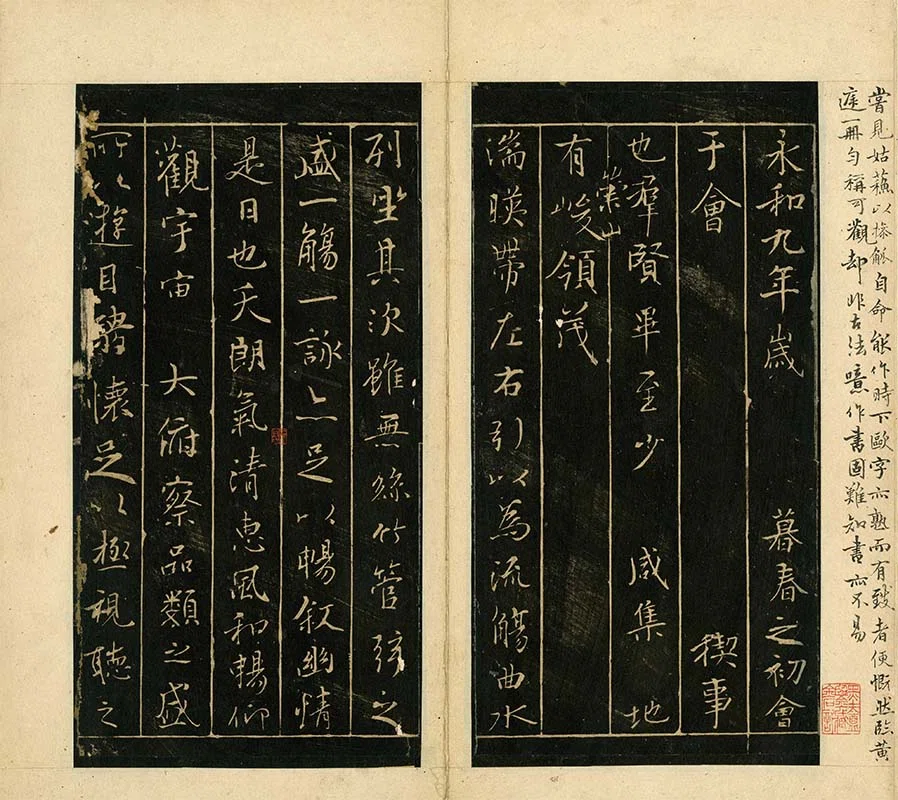 嘗見姑蘇以操觚自命能作時下歐字亦熟而有致者便慨然臨黃
庭一冊勻稱可觀却非古法噫作書固難知書亦不易
永和九年歲 暮春之初會
于會 稧事
也羣賢畢至少 咸集 地
有崇山峻領茂
湍暎帶左右引以為流觴曲水
列坐其次雖無絲竹管弦之
盛一觴一詠亦足以暢叙幽情
是日也天朗氣清惠風和暢仰
觀宇宙 大俯察品類之盛
所以遊目騁懷足以極視聽之